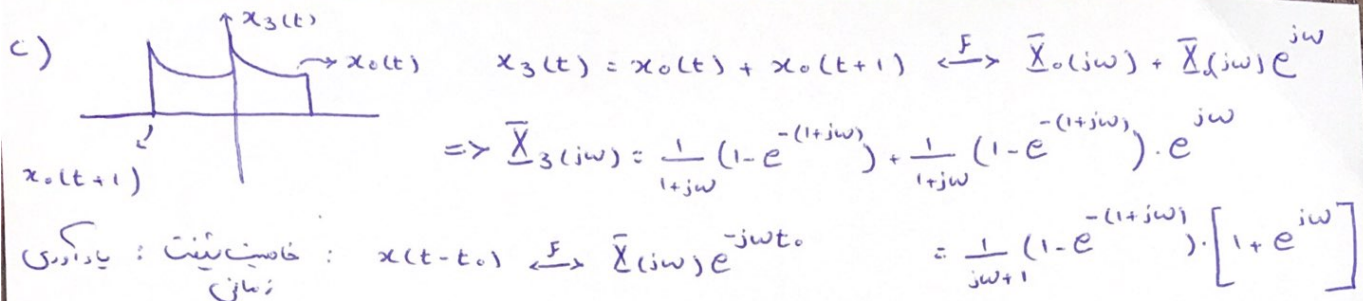 c) x₃(t)
→ x₀(t) x₃(t) = x₀(t) + x₀(t+1) <-F-> X̄₀(jω) + X̄₀(jω) e^{jω}
=> X̄₃(jω) = 1/(1+jω) (1 - e^{-(1+jω)}) + 1/(1+jω) (1 - e^{-(1+jω)}) . e^{jω}
x₀(t+1)
یادآوری : خاصیت شیفت زمانی : x(t-t₀) <-F-> X̄(jω) e^{-jωt₀}
= 1/(jω+1) (1 - e^{-(1+jω)}) . [1 + e^{jω}]